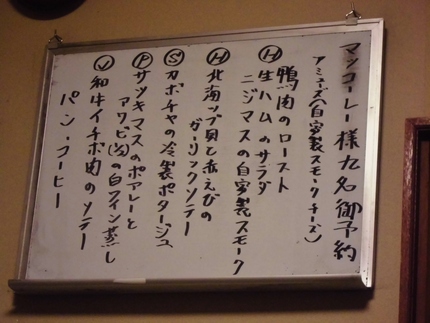 マンコーレー様九名御予約
アミューズ(自家製スモークチーズ)
鴨肉のロースト
Ⓗ生ハムのサラダ
ニジマスの自家製スモーク
Ⓗ北海ツブ貝と赤えびの
ガーリックソテー
Ⓢカボチャの冷製ポタージュ
Ⓟサツキマスのポアレーと
アワビ茸の白ワイン蒸し
Ⓥ和牛イチボ肉のソテー
パン・コーヒー